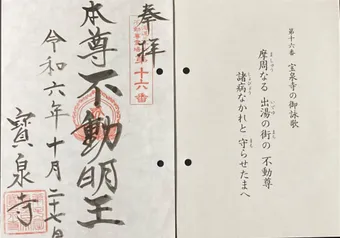 奉拝
第十六番
本尊不動明王
令和六年十月二十七日
寳泉寺
第十六番 宝泉寺の御詠歌
摩周なる 出湯の街の 不動尊
諸病なかれと 守らせたまへ